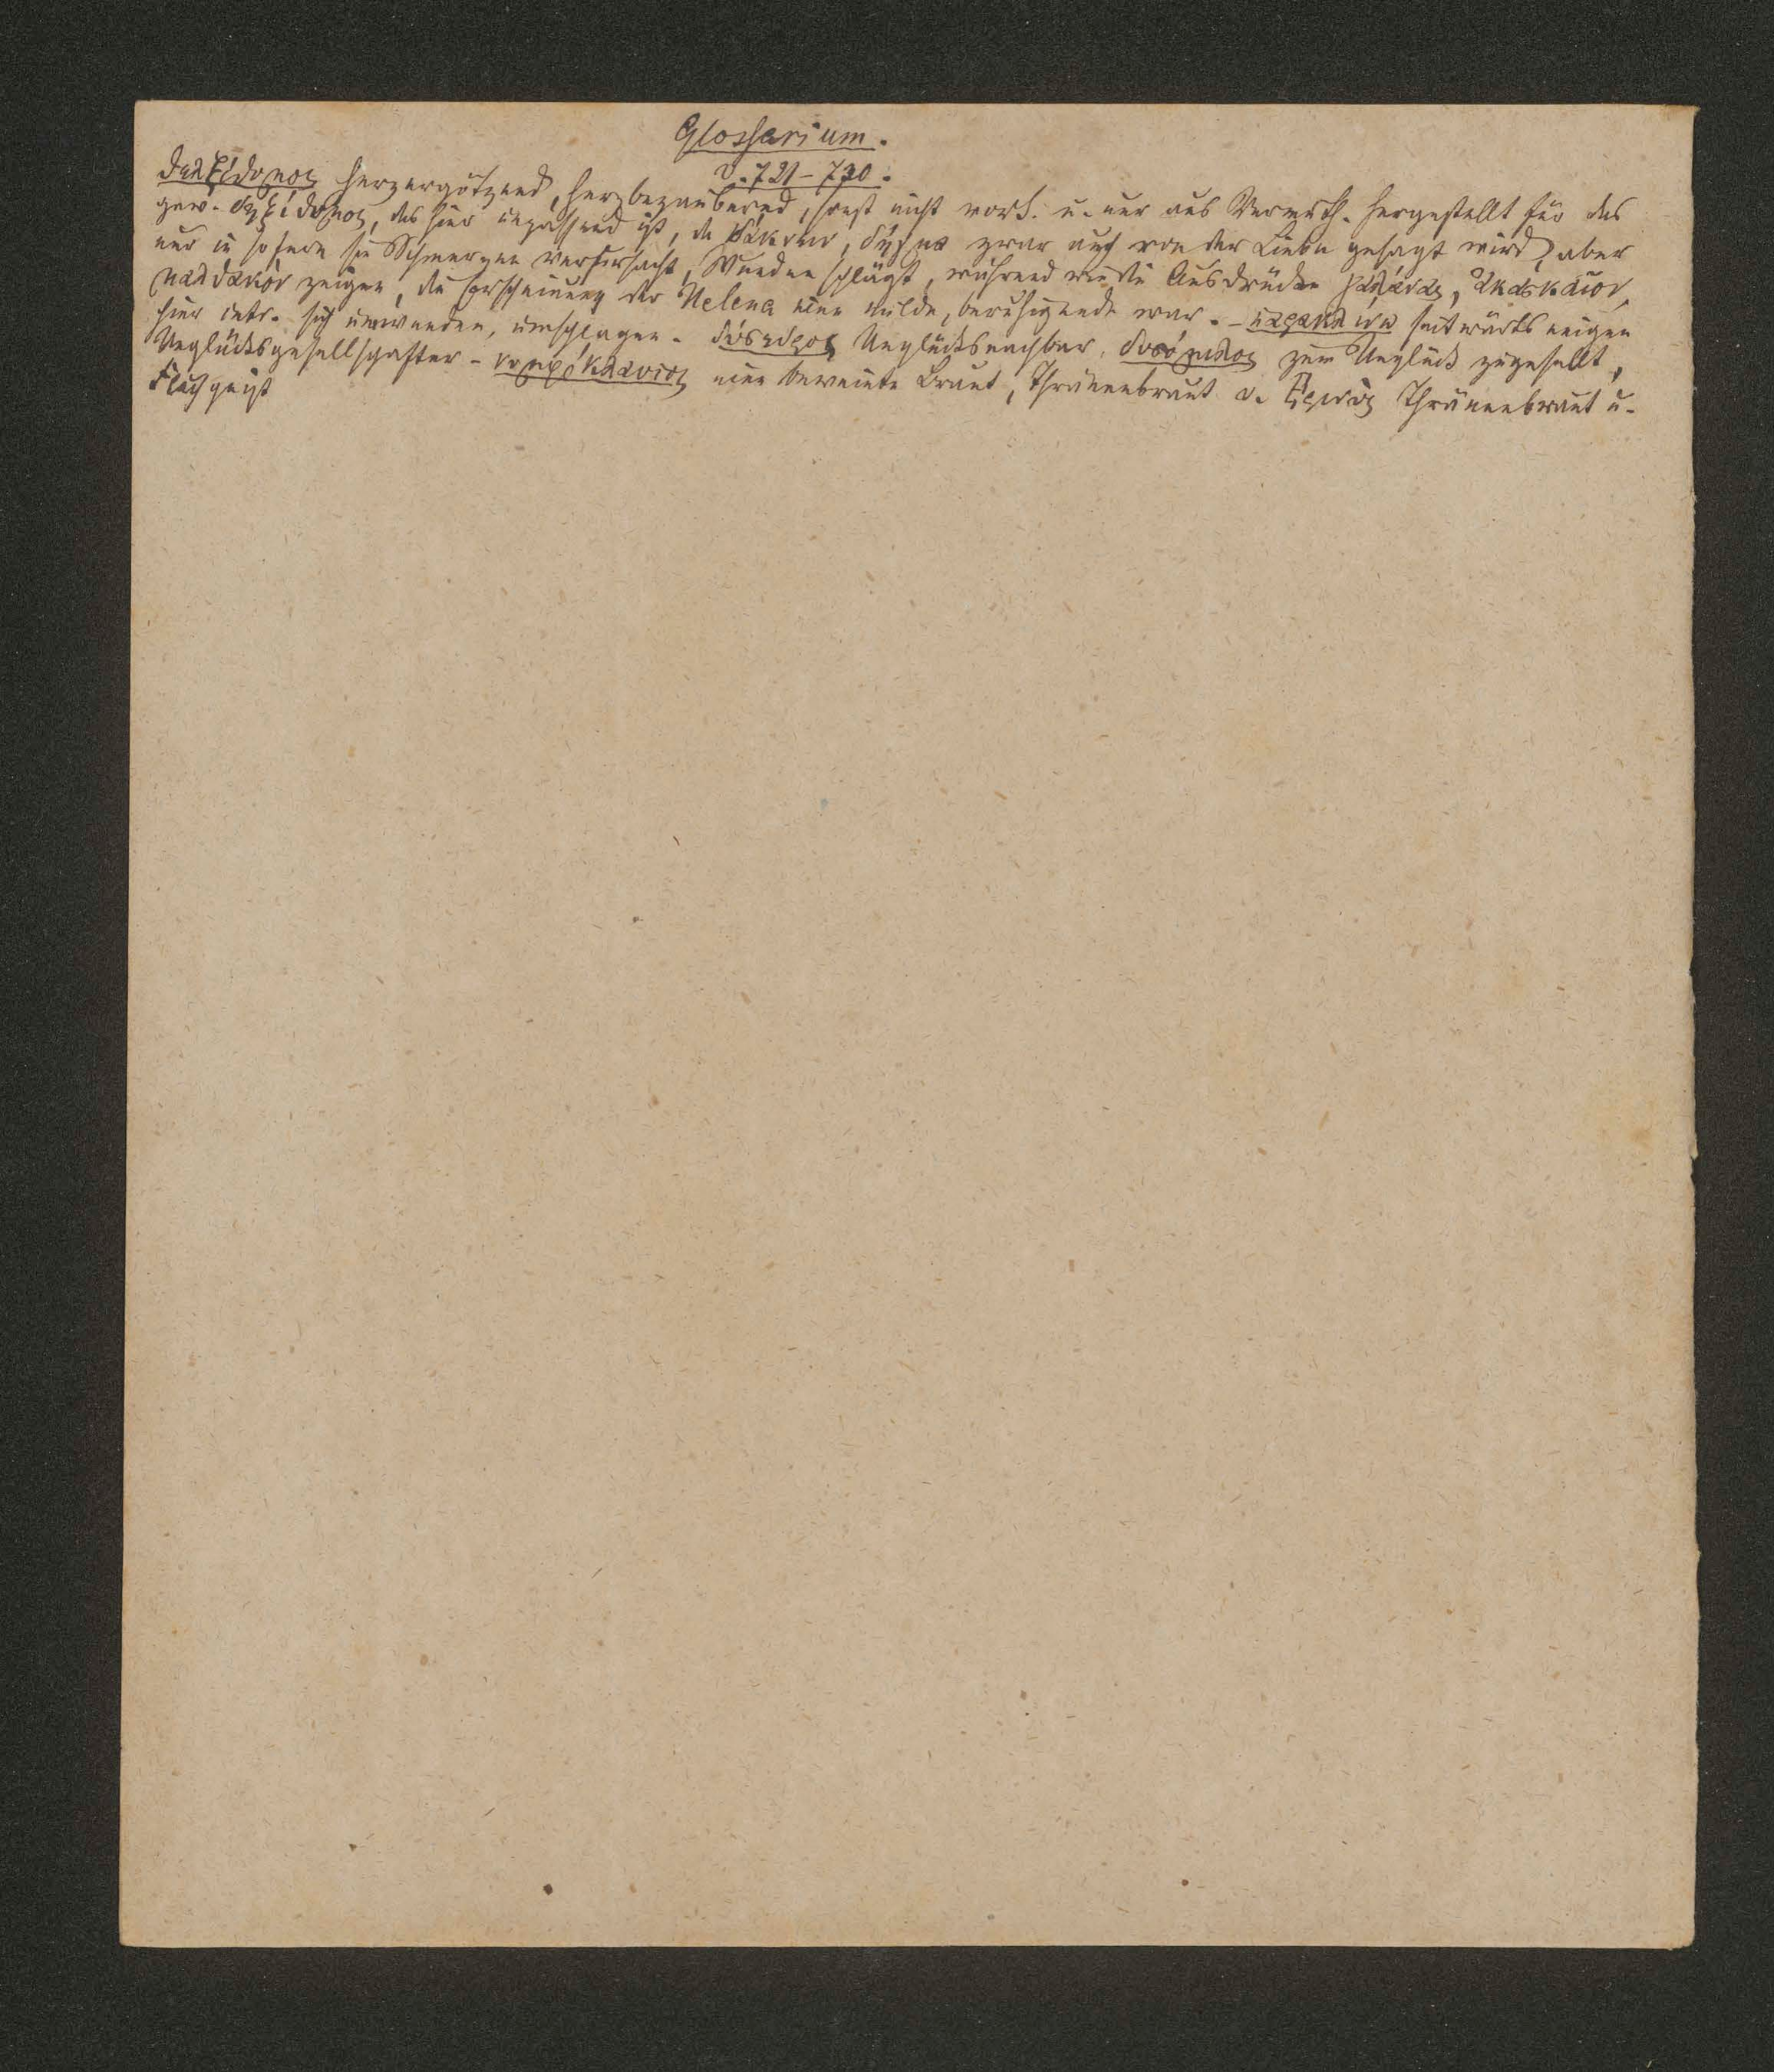 Glossarium.
V. 721–730.
δελξίθυμος herzergötzend, herzbezaubernd, sonst nicht vork. u. nur aus Vermuth. hergestellt für das
gew. δηξίθυμος, das hier unpassend ist, da δάκνειν, δῆγμα zwar auch von der Liebe gesagt wird, aber
nur in sofern sie Schmerzen verursacht, Wunden schlägt, während wie die Ausdrücke γαλάνας, ἀκασκαῖον,
μαλθακὸν zeigen, die Erscheinung der Helena eine milde, beruhigende war. – παρακλίνω seitwärts neigen
hier intr. sich umwenden, umschlagen. δύσεδρος Unglücksnachbar. δυσόμιλος zum Unglück zugesellt,
Unglücksgesellschafter – νυμφόκλαυτος eine beweinte Braut, Thränenbraut v. Ἐρινὺς Thränenbraut u.
Fluchgeist